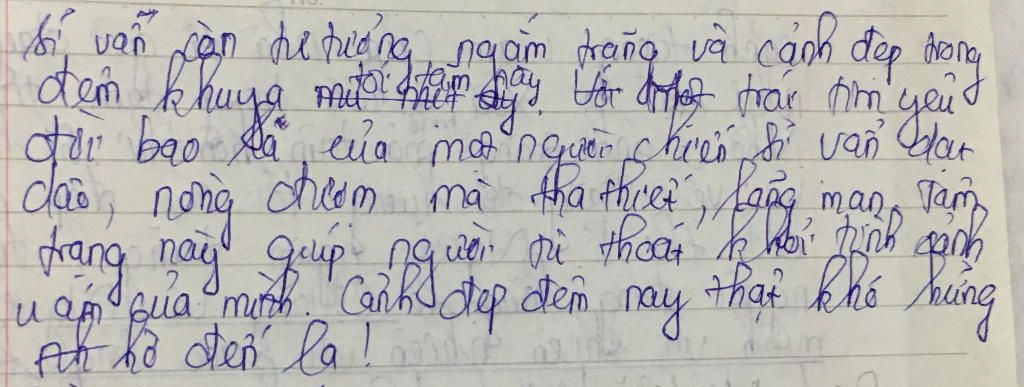 sĩ vẫn còn tư tưởng ngắm trăng và cảnh đẹp trong
đêm khuya tối tăm này. trái tim yêu
đời bao la của một người chiến sĩ vẫn dạt
dào, nồng đượm mà tha thiết, lãng mạn. Tâm
trạng này giúp người tù thoát khỏi tình cảnh
u ám của mình. Cảnh đẹp đêm nay thật khó hững
hờ đến lạ!